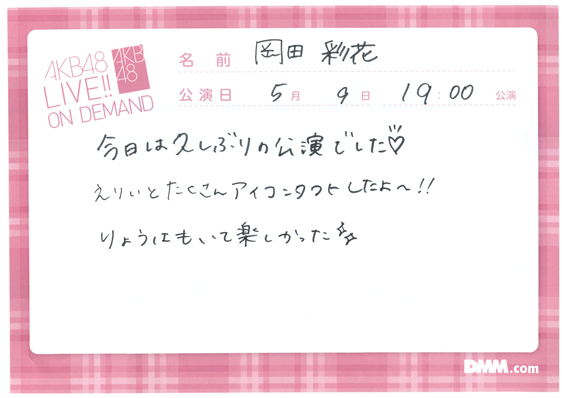 AKB48
LIVE!!
ON DEMAND
AKB
48
名前 岡田 彩花
公演日 5月 9日 19:00 公演
今日は久しぶりの公演でした♡
えりぃとたくさんアイコンタクトしたよ〜!!
りょうはもいて楽しかった☆☆
DMM.com